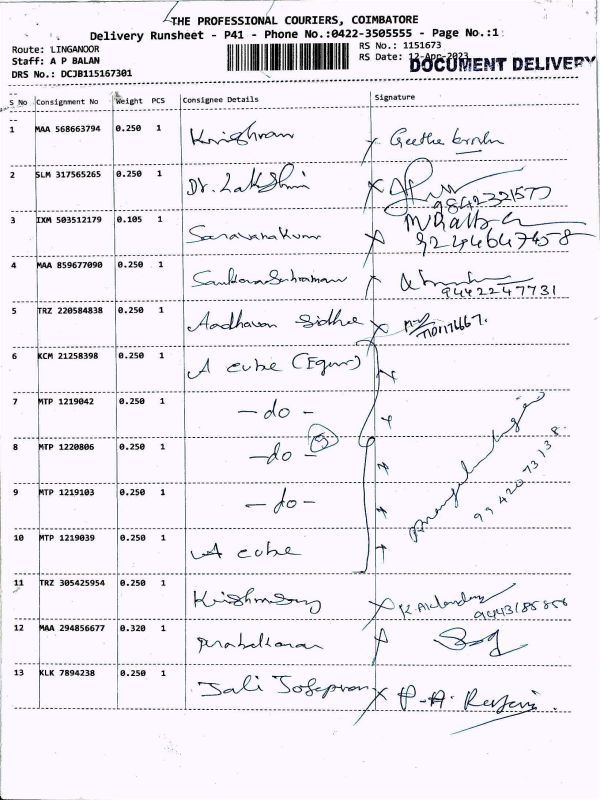 THE PROFESSIONAL COURIERS, COIMBATORE
Delivery Runsheet - P41 - Phone No.:0422-3505555 - Page No.:1
Route: LINGANOOR
Staff: A P BALAN
DRS No.: DCJB115167301
RS No.: 1151673
RS Date: 12-Apr-2023
DOCUMENT DELIVERY
S No Consignment No Weight PCS Consignee Details Signature
1 MAA 568663794 0.250 1 Krishnan Geetha
2 SLM 317565265 0.250 1 Dr. Lakshmi
3 IXM 503512179 0.105 1 Saravanakumar
4 MAA 859677090 0.250 1 Sankarasubramanian 9442247731
5 TRZ 220584838 0.250 1 Aadhavan
6 KCM 21258398 0.250 1 A cube
7 MTP 1219042 0.250 1 -do-
8 MTP 1220806 0.250 1 -do-
9 MTP 1219103 0.250 1 -do-
10 MTP 1219039 0.250 1 A cube
9942073138
11 TRZ 305425954 0.250 1
12 MAA 294856677 0.320 1 Prabakaran
13 KLK 7894238 0.250 1 Jali